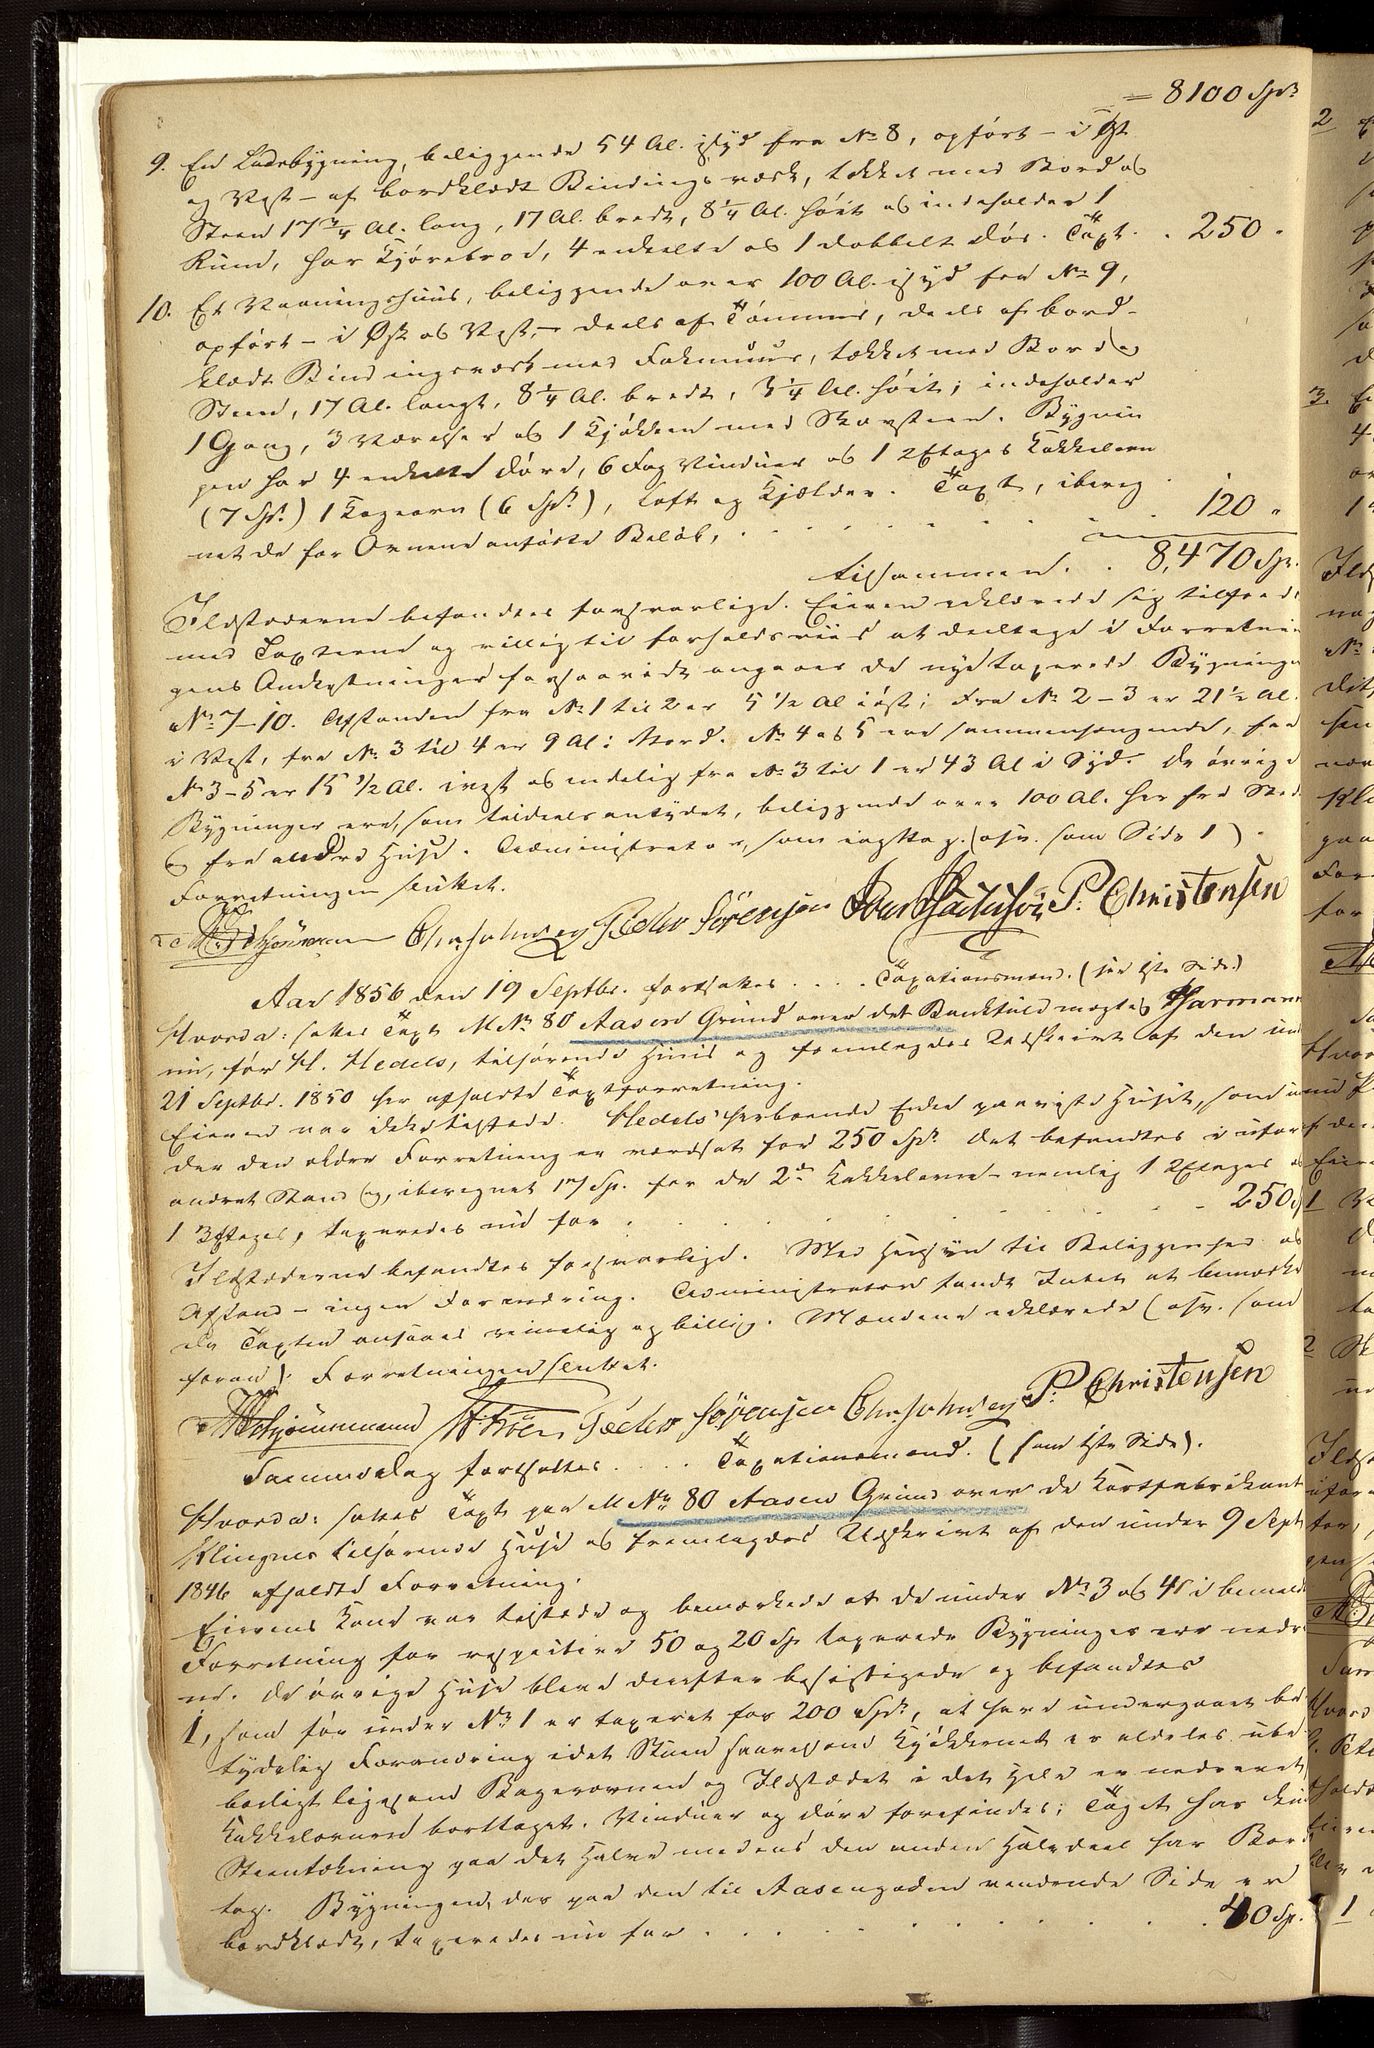 = 8100 Spd.
9. En Ladebygning, beliggende 54 Al. i Syd fra No 8, opført - i Øst
og Vest - af bordklædt Bindingsværk, tækket med Bord og
Steen 17 3/4 Al. lang, 17 Al. bredt, 8 1/4 Al. høit og indeholder 1
Rum, har Kjørebro, 4 enkelte og 1 dobbelt Dør. Taxt. . 250 "
10. Et Vaaningshuus, beliggende over 100 Al. i Syd fra No 9,
opført - i Øst og Vest, - deels af Tømmer, deels af bord-
klædt Bindingsværk med Fakmuur, tækket med Bord og
Steen, 17 Al. langt, 8 1/4 Al. bredt, 3 1/4 Al. høit; indeholder
1 Gang, 3 Værelser og 1 Kjøkken med Skorsteen. Bygnin
gen har 4 enkelte Døre, 6 Fag Vinduer og 1 2Etages Kakkelovn
(7 Spd.) 1 Kogeovn (6 Spd.), Loft og Kjælder. Taxt, ibereg
net de for Ovnene anførte Beløb, . . . . . 120 "
tilsammen . . 8,470 Sp.
Ildstæderne befandtes forsvarlige. Eieren erklærede sig tilfreds
med Taxterne og villig til forholdsviis at deeltage i Forretnin
gens Omkostninger forsaavidt angaaer de nye taxerede Bygninger
No 7-10. Afstanden fra No 1 til 2 er 5 1/2 Al i Øst; fra No 2-3 er 21 1/2 Al.
i Vest, fra No 3 til 4 er 9 Al i Nord. No 4 og 5 ere sammenhængende, fra
No 3-5 er 15 1/2 Al. i Vest og endelig fra No 3 til 1 er 43 Al i Syd. De øvrige
Bygninger ere, som tildeels antydet, beliggende over 100 Al. her fra Sted
og fra andres Huse. Administrator, som iagttog. (osv. som Side 1)
Forretningen sluttet.
Chr. Johnsen Peder Sørensen P. Christensen
Aar 1856 den 19 Septbr. fortsattes . . . . Taxationsmænd. (see 1ste Side.)
Hvorda: sattes Taxt M No 80 Aasen Grund over det Bankfuldmægtig Harmann
nu, før H. Hedels, tilhørende Huus og fremlagdes Udskrivt af den un
21 Septbr. 1850 her afholdte Taxtforretning.
Eieren var ikke tilstede. Hedels' herboende Enke paaviste Huset, som un
der den ældre Forretning er værdsat for 250 Spd. Det befandtes i ufor
andret Stand og, iberegnet 17 Sp. for de 2de Kakkelovne - nemlig 1 2Etages og
1 3Etages, taxeredes nu for . . . . . . 250 Sp
Ildstæderne befandtes forsvarlige. Med Hensyn til Beliggenhed og
Afstand - ingen Forandring. Administrator fandt Intet at bemærke
da Taxten ansaaes rimelig og billig. Mændene erklærede (osv. som
foran). Forretningen sluttet.
Peder Sørensen Chr. Johnsen P. Christensen
Sammedag fortsattes . . . . Taxationsmænd. (som 1ste Side).
Hvorda: sattes Taxt paa M No 80 Aasen Grund over de Kortfabrikant
Klingner tilhørende Huse og fremlagdes Udskrivt af den under 9 Sept
1846 afholdte Forretning.
Eierens Kone var tilstede og bemærkede at de under No 3 og 4 i bemeldte
Forretning for respective 50 og 20 Sp taxerede Bygninger ere nedrev
ne. De øvrige Huse bleve derefter besigtigede og befandtes
1, som før under No 1 er taxeret for 200 Spd., at have undergaaet be
tydelig Forandring idet Stuen saavelsom Kjøkkenet er aldeles ube
boeligt ligesom Bagerovnen og Ildstædet i det Hele er nedrevet,
Kakkelovnen borttaget. Vinduer og Døre forefindes; Taget har kun
Steentækning paa det Halve medens den anden Halvdeel har Bord
tag. Bygningen, der paa den til Aasengaden vendende Side er
bordklædt, taxeredes nu for . . . . . . 40 Sp.